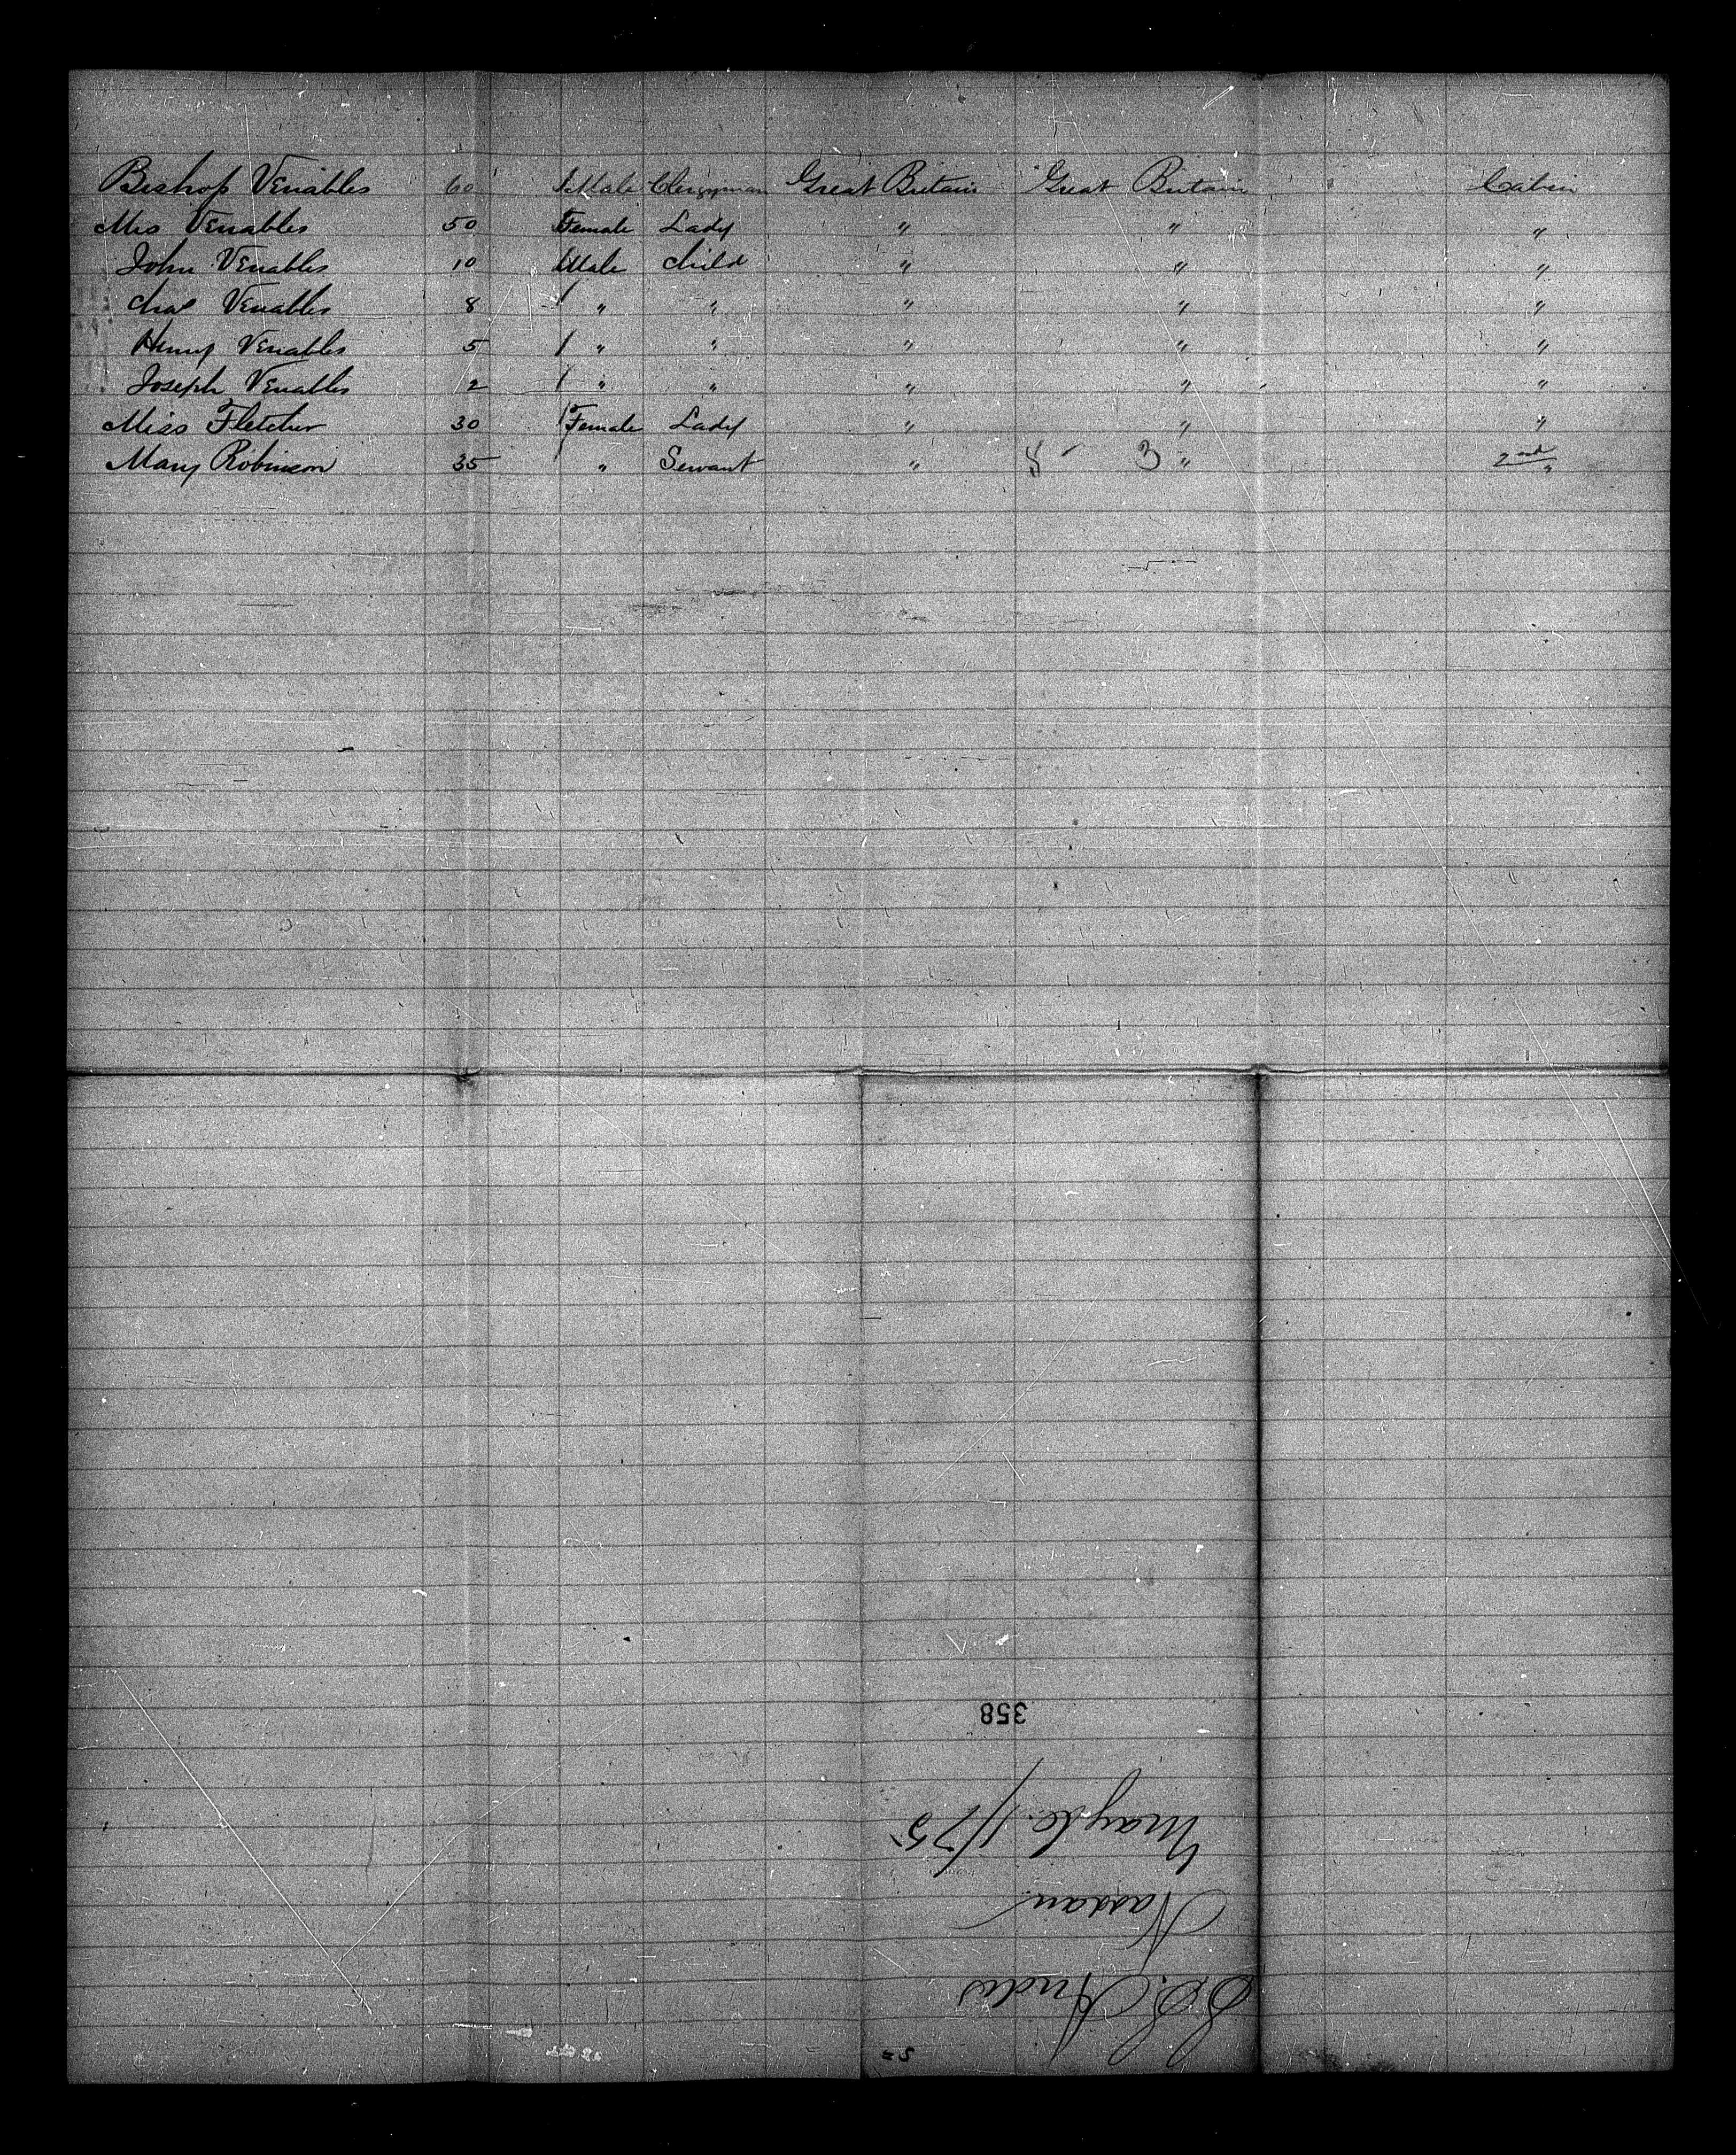 Bishop Venables 60 Male Clergyman Great Britain Great Britain Cabin
Mrs Venables 50 Female Lady " " "
John Venables 10 Male Child " " "
Chas Venables 8 " " " " "
Henry Venables 5 " " " " "
Joseph Venables 2 " " " " "
Miss Fletcher 30 Female Lady " " "
Mary Robinson 35 " Servant " 8 3 " 2nd "
S.S. Andes
Nassau
May 1/75
358